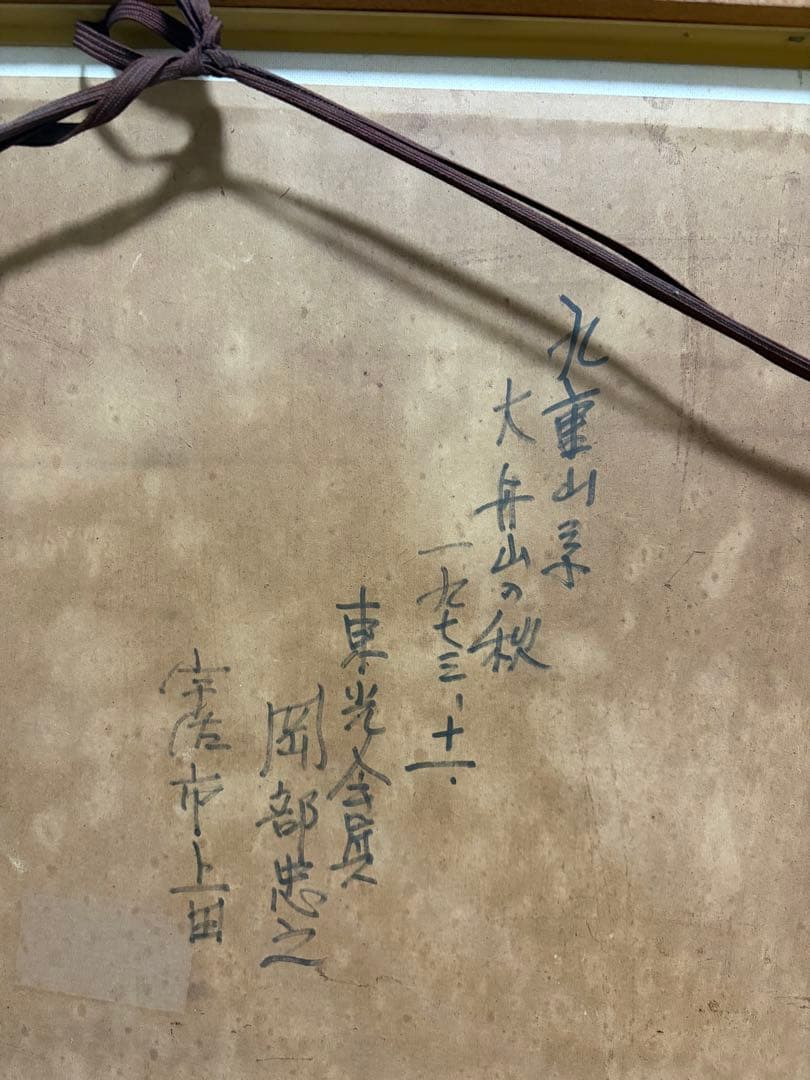 九重山系
大船山の秋
一九七三、十一.
東光会員
岡部忠之
宇佐市上田